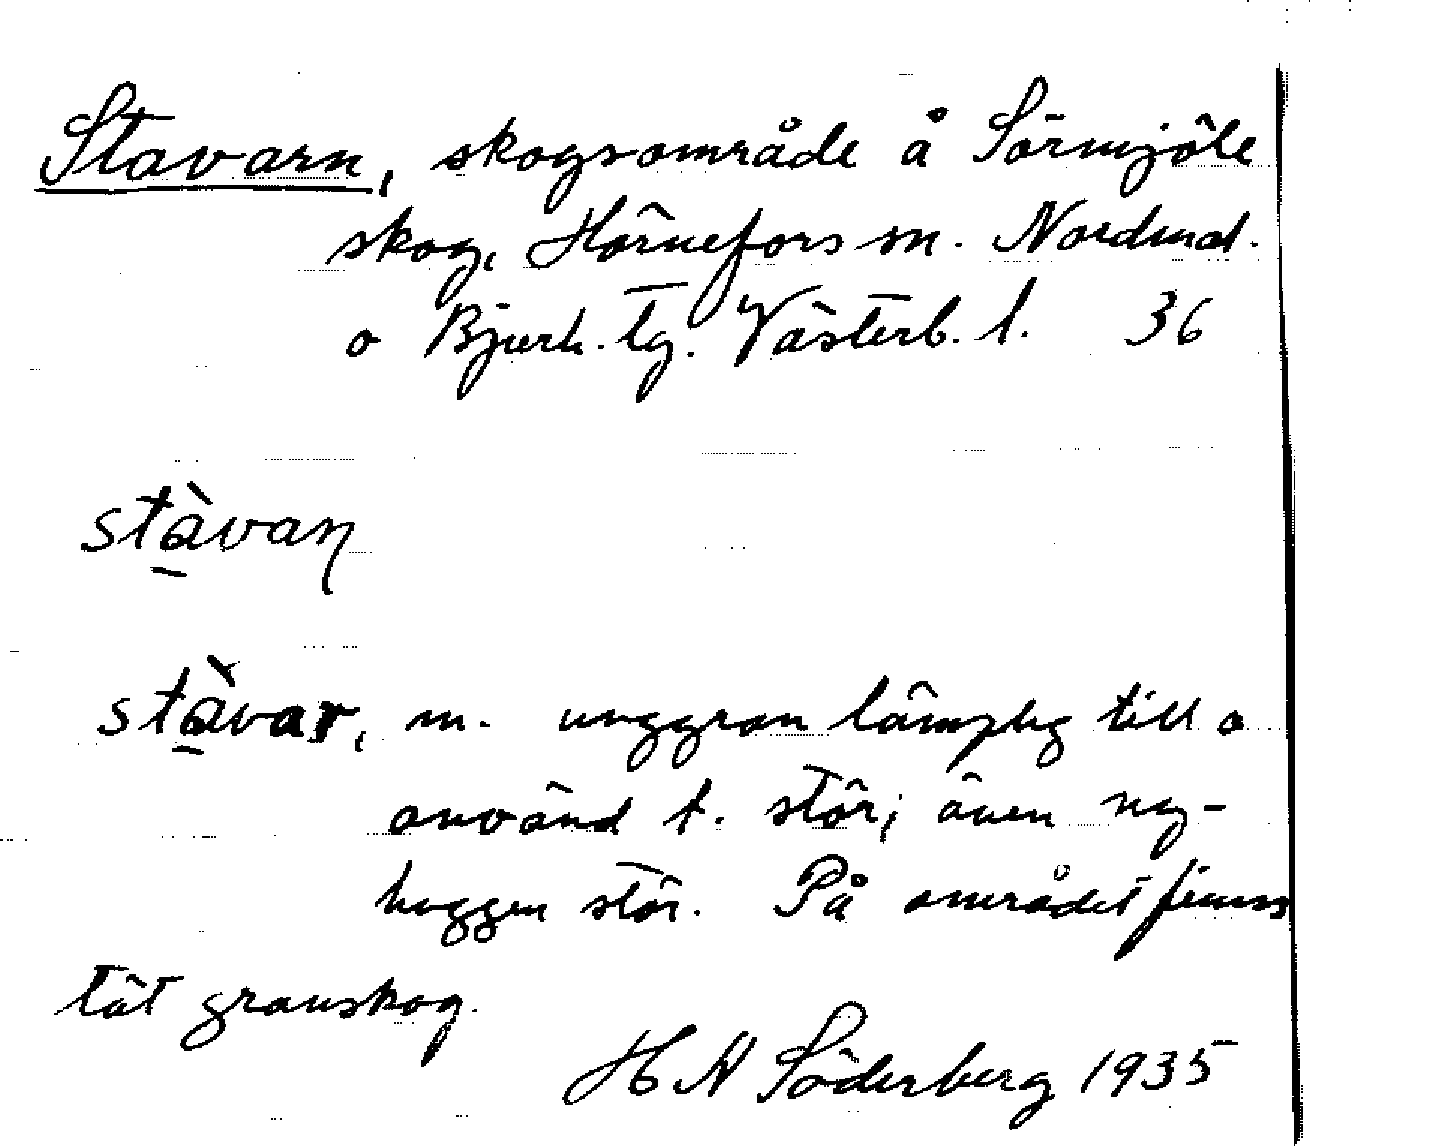 Stavarn, skogsområde å Sörmjöle
skog, Hörnefors sn. Nordmal.
o Bjurh. tg. Västerb. l. 36
stàvaņ
stàvar, m. unggran lämplig till a
använd t. stör; även ny-
huggen stör. På området finns
tät granskog.
H N Söderberg 1935